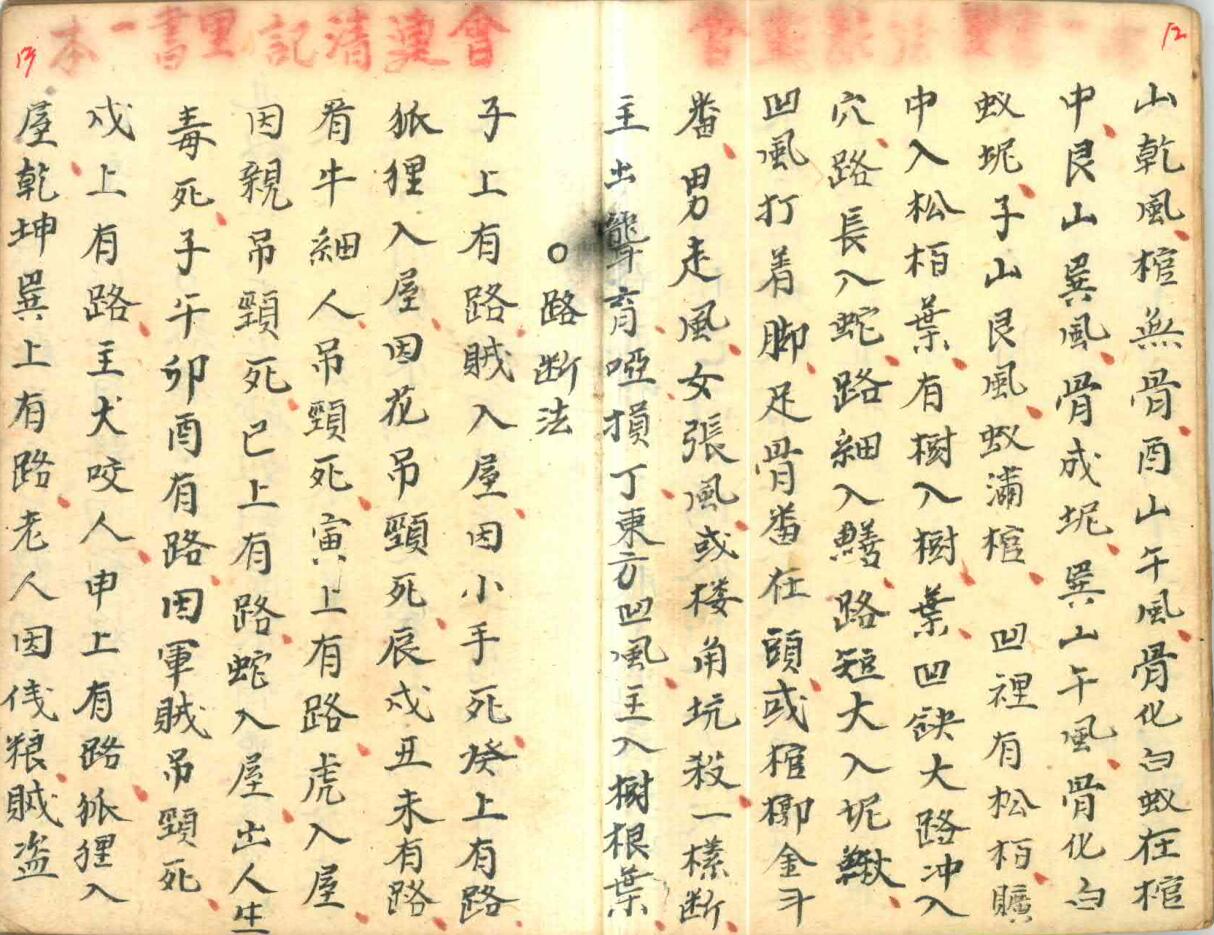 12
山乾風棺無骨酉山午風骨化白蚁在棺
中艮山巽風骨成坭巽山午風骨化白
蚁坭子山艮風蚁滿棺 凹裡有松栢曠
中入松栢葉有樹入樹葉凹缺大路冲入
穴路長入蛇路細入鱔路短大入坭鰍
凹風打着脚足骨畨在頭或棺槨金斗
畨男走風女張風或楼角坑殺一樣断
主出聾育啞損丁東方凹風主入樹根葉
○路断法
子上有路賊入屋因小手死癸上有路
狐狸入屋因花吊頸死辰戍丑未有路
看牛細人吊頸死寅上有路虎入屋
因親吊頸死已上有路蛇入屋出人生
毒死子午卯酉有路因軍賊吊頸死
戍上有路主犬咬人申上有路狐狸入
屋乾坤巽上有路老人因伐粮賊盗
會連清記里書一本
13